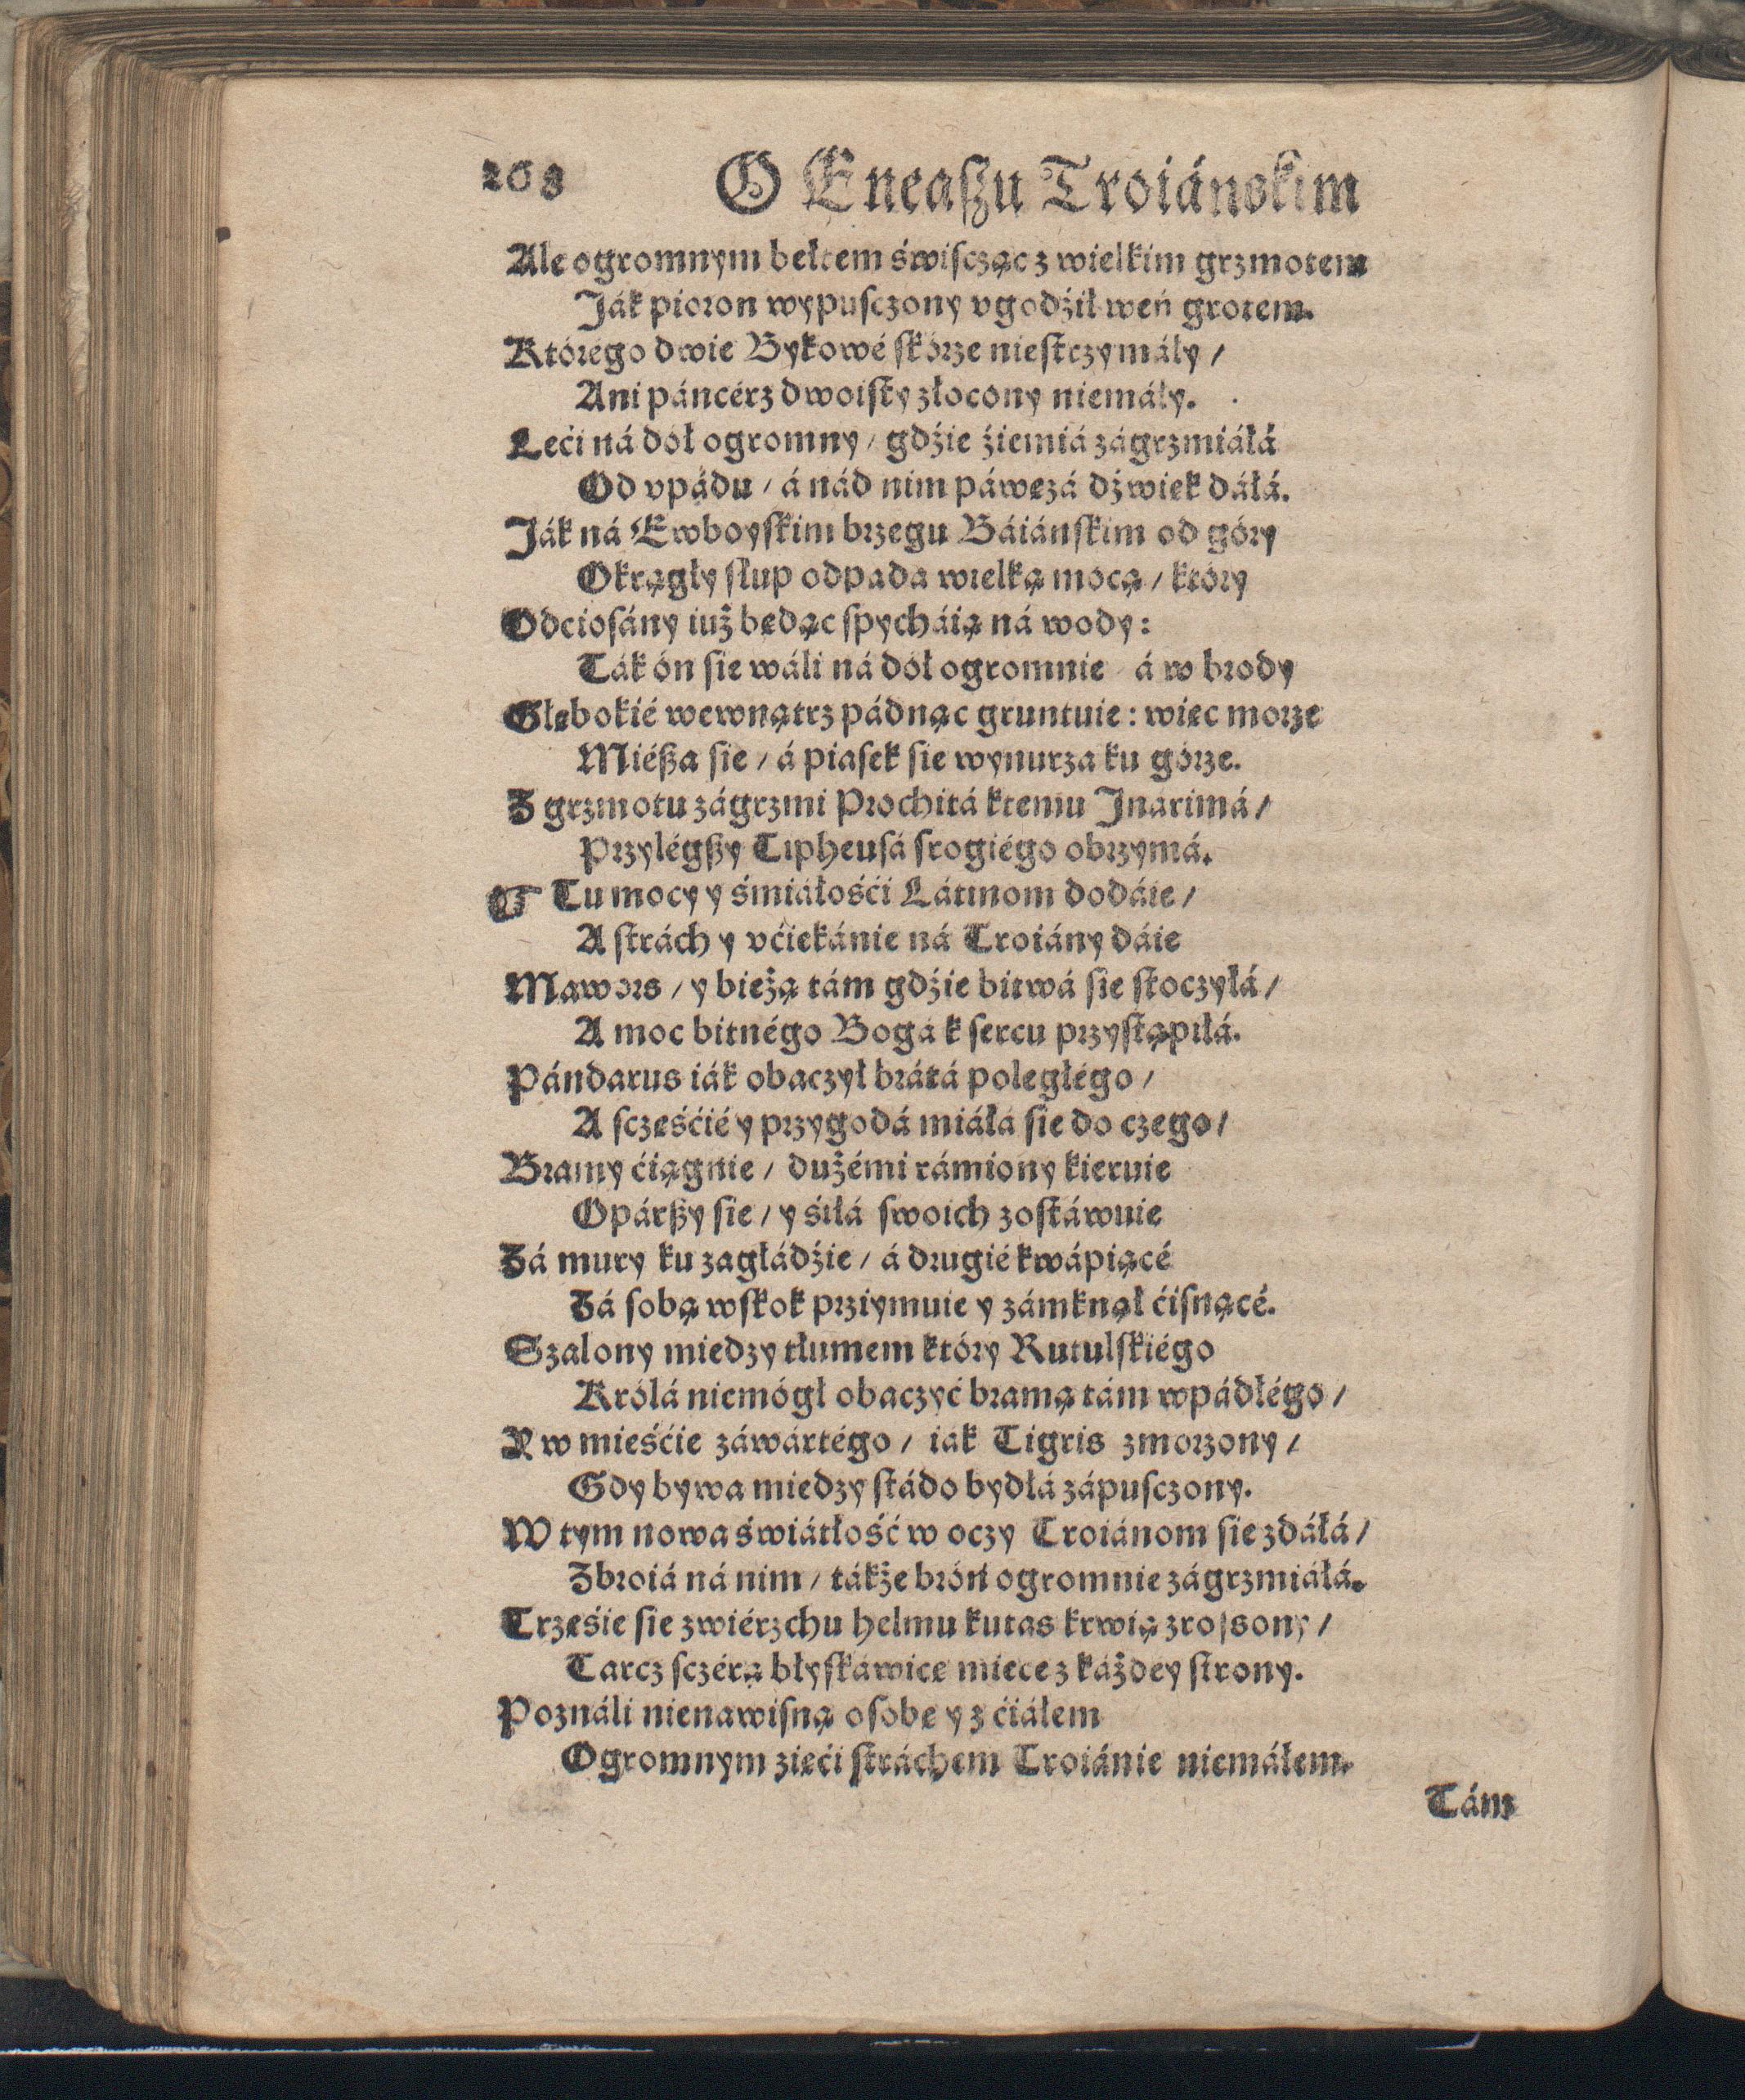 268 O Eneaſzu Troiánskim
Ale ogromnym bełtem świſcząc z wielkim grzmotem
Ják pioron wypuſczony vgodźił weń grotem.
Którégo dwie Bykowé ſkórze nieſtrzymáły /
Ani páncérz dwoiſty złocony niemáły.
Leći ná dół ogromny / gdźie źiemiá zágrzmiáłá
Od vpádu / á nád nim páwęzá dźwięk dáłá.
Ják ná Ewboyſkim brzegu Báiánſkim od góry
Okrągły ſłup odpada wielką mocą / który
Odcioſány iuż będąc ſpycháią ná wody:
Ták ón ſie wáli ná dół ogromnie á w brody
Głębokié wewnątrz pádnąc gruntuie: więc morze
Miéßa ſie / á piaſek ſie wynurza ku górze.
Z grzmotu zágrzmi Prochitá ktemu Jnarimá /
Przylégßy Tipheuſá ſrogiégo obrzymá.
☞ Tu mocy y śmiáłośći Látinom dodáie /
A ſtrách y vćiekánie ná Troiány dáie
Mawors / y bieżą tám gdźie bitwá ſie ſtoczyłá /
A moc bitnégo Bogá k ſercu przyſtąpiłá.
Pándarus iák obaczył brátá poległégo /
A ſczęśćié y przygodá miáłá ſie do czego /
Bramy ćiągnie / dużémi rámiony kieruie
Opárßy ſie / y śiłá ſwoich zoſtáwuie
Zá mury ku zagłádźie / á drugié kwápiącé
Zá ſobą wſkok prziymuie y zámknął ćiſnącé.
Szalony miedzy tłumem który Rutulſkiégo
Królá niemógł obaczyć bramą tám wpádłégo /
Y w mieśćie záwártégo / iák Tigris zmorzony /
Gdy bywa miedzy ſtádo bydłá zápuſczony.
W tym nowa świátłość w oczy Troiánom ſie zdáłá /
Zbroiá ná nim / tákże bróń ogromnie zágrzmiáłá.
Trzęśie ſie zwiérzchu helmu kutas krwią zroſsony /
Tarcz ſczérą błyſkáwice miece z káżdey ſtrony.
Poználi nienawiſną oſobę y z ćiáłem
Ogromnym zięći ſtráchem Troiánie niemáłem.
Tám